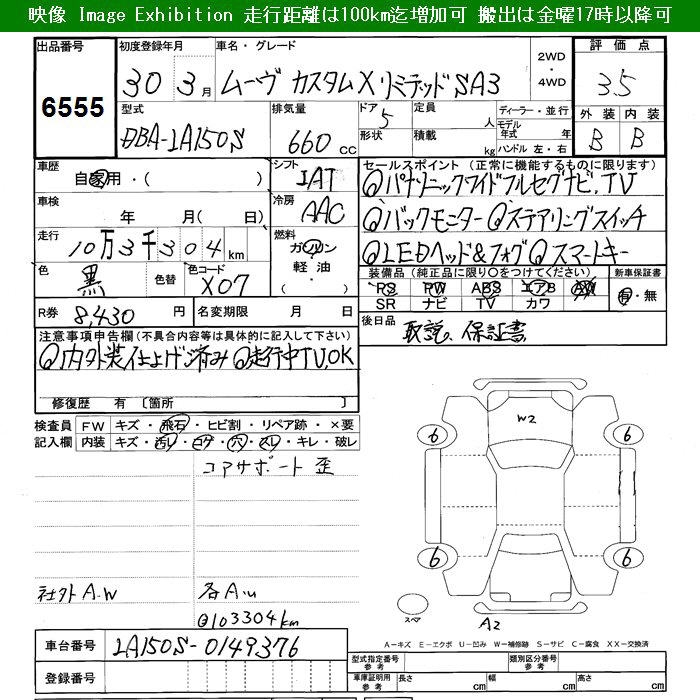 映像 Image Exhibition 走行距離は100km迄増加可 搬出は金曜17時以降可
出品番号 初度登録年月 車名・グレード 2WD・4WD 評価点
6555 30年3月 ムーヴ カスタムXリミテッドSA3 3.5
型式 排気量 ドア 定員 ディーラー・並行 外装 内装
DBA-LA150S 660cc 5 人 モデル年式 年 B B
形状 積載 kg ハンドル 左・右
車歴 自家用・( ) シフト IAT セールスポイント (正常に機能するものに限ります)
◎パナソニックワイドフルセグナビ、TV
車検 年 月( 日) 冷房 AAC ◎バックモニター ◎ステアリングスイッチ
走行 10万3千304km 燃料 ガソリン 軽油・ ◎LEDヘッド&フォグ ◎スマートキー
色 黒 色替 色コード X07 装備品 (純正品に限り○をつけてください) 新車保証書
PS PW ABS エアB AW 有・無
SR ナビ TV カワ
R券 8,430円 名変期限 月 日 後日品 取説、保証書
注意事項申告欄(不具合内容等は具体的に記入して下さい)
◎内外装仕上げ済み ◎走行中TV,OK
修復歴 有 〔箇所
検査員記入欄 FW キズ・飛石・ヒビ割・リペア跡・×要
内装 キズ・汚レ・コゲ・穴・スレ・キレ・破レ
コアサポート 歪
W2
6 6
6 6
社外A.W 各A,U
◎103304km
スペア A2
車台番号 LA150S-0149376
登録番号
A−キズ E−エクボ U−凹み W−補修跡 S−サビ C−腐食 XX−交換済
型式指定番号 参考 類別区分番号 参考
車庫証明用 参考 長さ cm 幅 cm 高さ cm